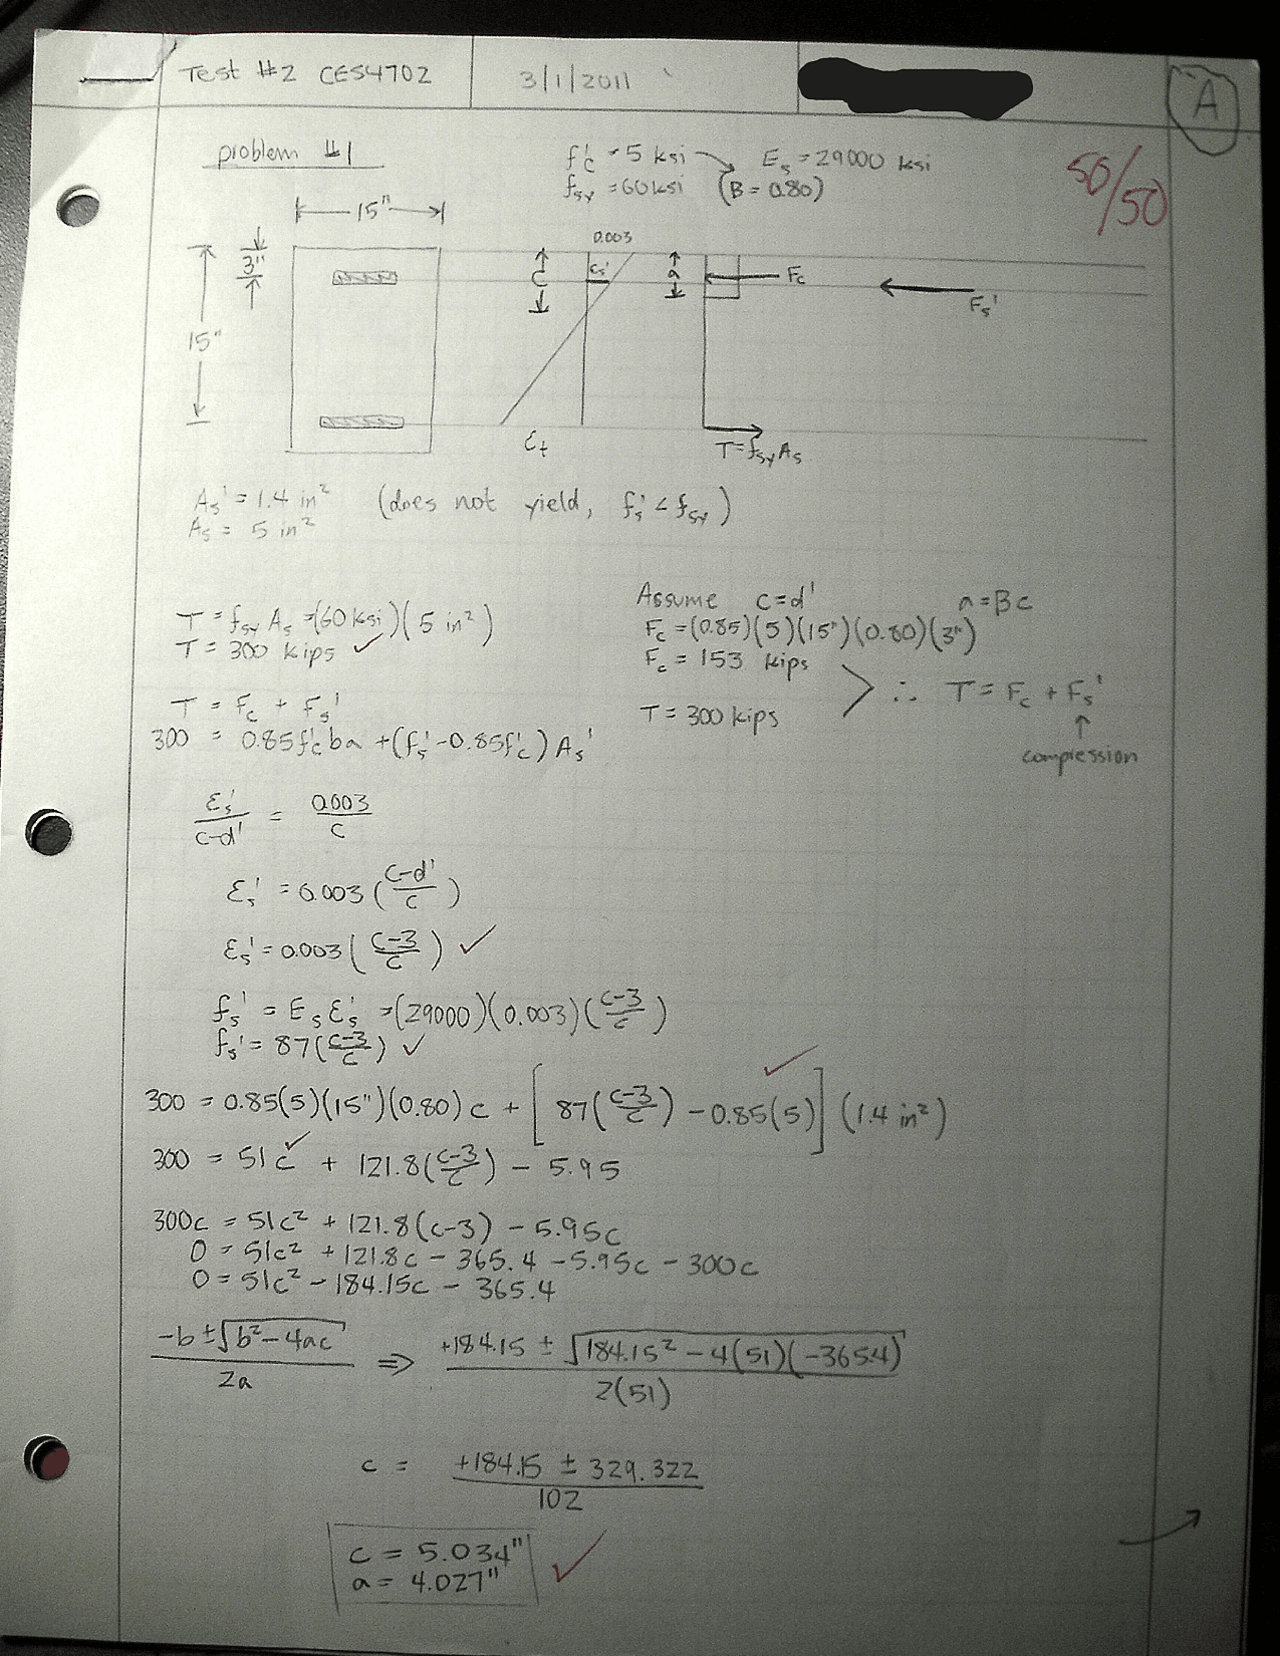 Test #2 CES4702
3/1/2011
A
problem #1
f'c = 5 ksi
Es = 29000 ksi
fsy = 60 ksi (B = 0.80)
50/50
15"
3"
15"
0.003
c
εs'
a
Fc
Fs'
εt
T = fsy As
As' = 1.4 in² (does not yield, fs' < fsy)
As = 5 in²
T = fsy As = (60 ksi)(5 in²)
T = 300 kips ✓
T = Fc + Fs'
300 = 0.85f'c ba + (fs' - 0.85f'c) As'
Assume c = d' a = Bc
Fc = (0.85)(5)(15")(0.80)(3")
Fc = 153 kips
T = 300 kips
∴ T = Fc + Fs'
↑
compression
εs'/(c-d') = 0.003/c
εs' = 0.003 ((c-d')/c)
εs' = 0.003 ((c-3)/c) ✓
fs' = Es εs' = (29000)(0.003)((c-3)/c)
fs' = 87((c-3)/c) ✓
300 = 0.85(5)(15")(0.80) c + [87((c-3)/c) - 0.85(5)] (1.4 in²)
300 = 51c + 121.8((c-3)/c) - 5.95
300c = 51c² + 121.8(c-3) - 5.95c
0 = 51c² + 121.8c - 365.4 - 5.95c - 300c
0 = 51c² - 184.15c - 365.4
(-b ± √(b² - 4ac))/2a ⇒ (+184.15 ± √(184.15² - 4(51)(-365.4)))/2(51)
c = (+184.15 ± 329.322)/102
c = 5.034"
a = 4.027" ✓